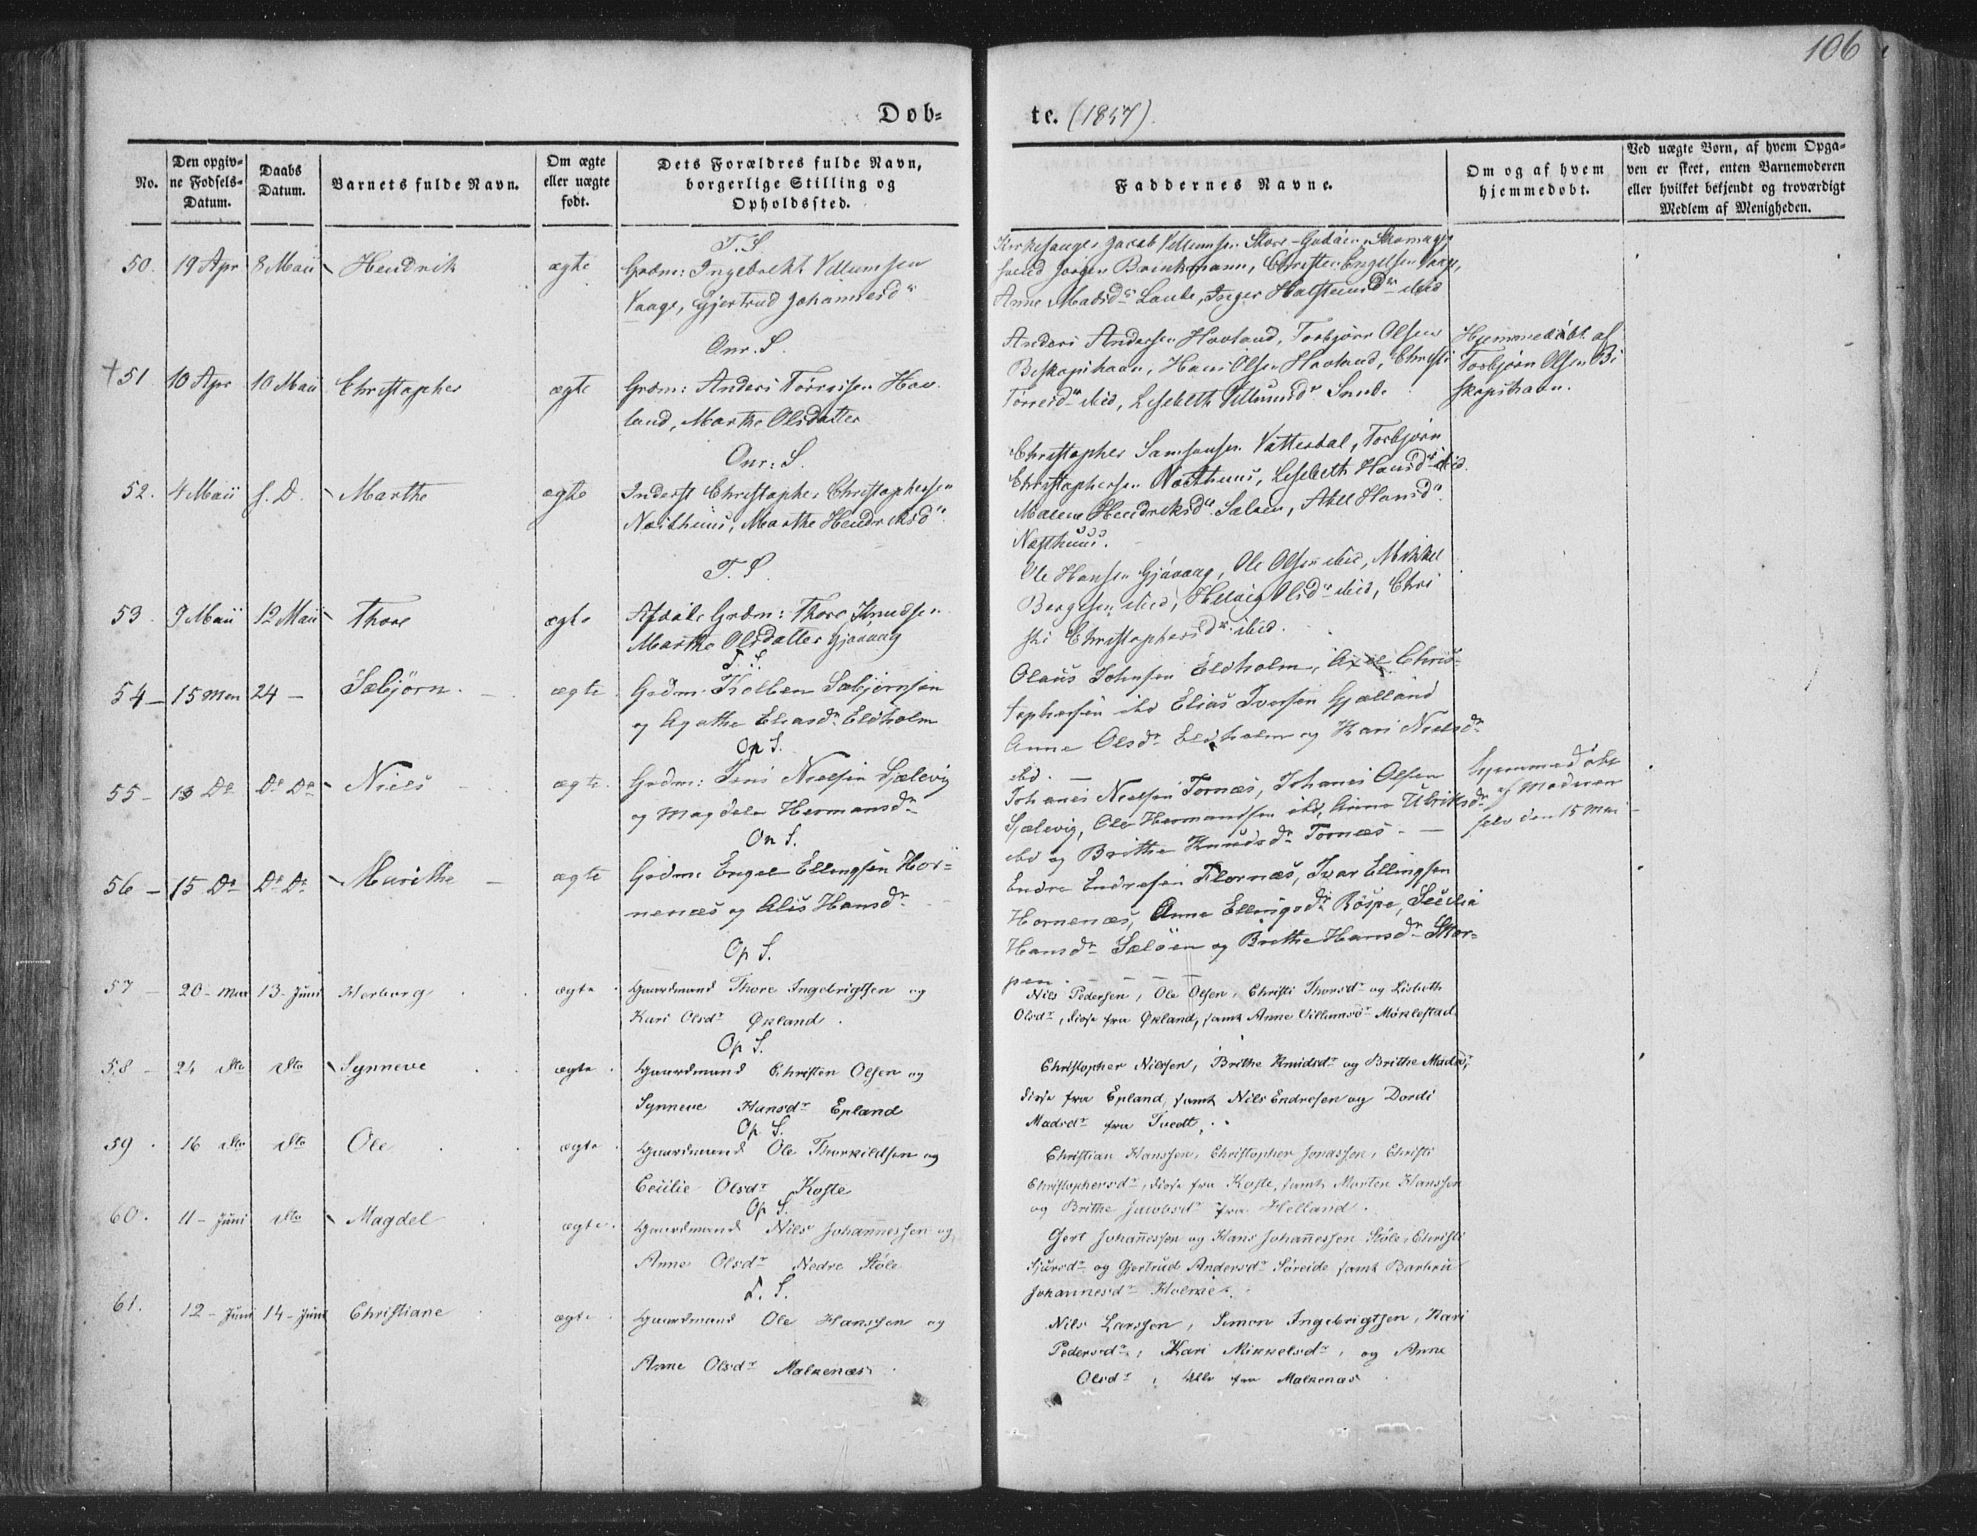 106
Døb=
te. (1857).
No.
Den opgiv=
ne Fødsels=
Datum.
Daabs
Datum.
Barnets fulde Navn.
Om ægte
eller uægte
født.
Dets Forældres fulde Navn,
borgerlige Stilling og
Opholdssted.
Faddernes Navne.
Om og af hvem
hjemmedøbt.
Ved uægte Børn, af hvem Opga=
ven er skeet, enten Barnemoderen
eller hvilket bekjendt og troværdigt
Medlem af Menigheden.
T. S
50. 19 Apr 8 Maii Hendrik ægte Grdm: Ingebrekt Villumsen
Vaage, Gjertrud Johannesdr
Kirkesanger Jacob Villumsen Store-
Svend Jørgen Brinkmann, Christen Engelsen Vaage,
Anne Madsdr Laube, Inger Halsteinsdr ibid
Onr. S.
+51 10 Apr 10 Maii Christopher ægte Grdm: Anders Torresen Hov
land, Marthe Olsdatter
Anders Andersen Hovland, Torbjørn Olsen
Beskopshavn, Hans Olsen Hovland, Christi
Torresdr ibid, Lisebeth Villumsdr
Hjemmedøbt af
Torbjørn Olsen Bi
skopshavn.
Onr: S.
52. 4 Maii s. D. Marthe ægte Inderst Christopher Christophersen
Næsthuus, Marthe Hendriksdr.
Christopher Samsonsen Vatterdal, Torbjørn
Christophersen Næsthuus, Lisebeth Hansdr ibid.
Malene Hendriksdr Sæløen, Alis Hansdr
Næsthuus.
T. S.
53. 9 Maii 12 Maii Thore ægte Grdm: Thore Knudsen
Marthe Olsdatter Gjøvaag
Ole Hansen Gjøvaag, Ole Olsen ibid, Mikkel
Børgesen ibid, Helvig Olsdr ibid, Chri
sti Christophersdr ibid.
T. S.
54 - 15 Mai 24 - Sæbjörn. ægte Grdm: Kolben Sæbjørnsen
og Agathe Eliasdr Eldholm
Olaus Johnsen Eldholm, Axel Chris=
tophersen ibd Elias Iversen Gjælland
Anne Olsdr Eldholm og Kari Nielsdr
ibd. -
Op S.
55 - 13 Do Do Do Niels ægte Grdm: Jens Nielsen Sjælevig
og Magdela Hermansdr
Johanes Nielsen Tornæs, Johanes Olsen
Sjælevig, Ole Hermandsen ibd, Anne Ulriksdr
ibd og Brithe Knudsdr Tornæs. -
Hjemmedøbt
af Moderen
selv den 15 Mai
On S.
56 - 15 Do Do Do Marithe ægte Grdm: Engel Ellingsen Hor=
nenæs og Alis Hansdr
Endre Endresen Flornæs, Ivar Ellingsen
Hornenæs, Anne Ellingsdr Röspe, Secilia
Hansdr Sælöen og Brithe Hansdr Stor=
pen.
Op S.
57 - 20 - Mai 13 - Juni Herborg ægte Gaardmand Thore Ingebrigtsen og
Kari Olsdr Økland.
Nils Pedersen, Ole Olsen, Christi Thorsdr og Lisbeth
Olsdr, disse fra Økland, samt Anne Villumsdr Møklestad
Op S.
58 - 24 dto dto Synneve ægte Gaardmand Christen Olsen og
Synneve Hansdr Epland
Christopher Nilssen, Brithe Knudsdr og Brithe Madsdr,
disse fra Epland, samt Nils Endresen og Dordi
Madsdr fra Tvedt.
Op S.
59. 16 dto dto Ole ægte Gaardmand Ole Thorkildsen og
Cecilie Olsdr Koste
Christian Hanssen, Christopher Jonassen, Christi
Christophersdr, disse fra Koste, samt Morten Hanssen
og Brithe Jacobsdr fra Helland.
Op S.
60. 11 - Juni dto Magdel ægte Gaardmand Nils Johannessen og
Anne Olsdr Nedre Støle
Gert Johannessen og Hans Johannessen Støle, Christi
Sjursdr og Gjertrud Andersdr Søreide samt Barbru
Johannesdr
T. S.
61. 12 - Juni 14 - Juni Christiane ægte Gaardmand Ole Hanssen og
Anne Olsdr Malkenæs.
Nils Larssen, Simon Ingebrigtsen, Kari
Pedersdr, Kari Mikkelsdr, og Anne
Olsdr, Alle fra Malkenæs.